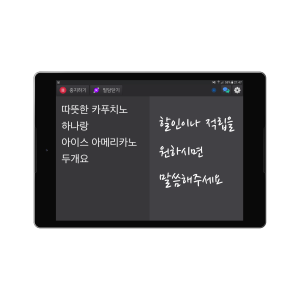 따뜻한 카푸치노
하나랑
아이스 아메리카노
두개요
할인이나 적립을
원하시면
말씀해주세요